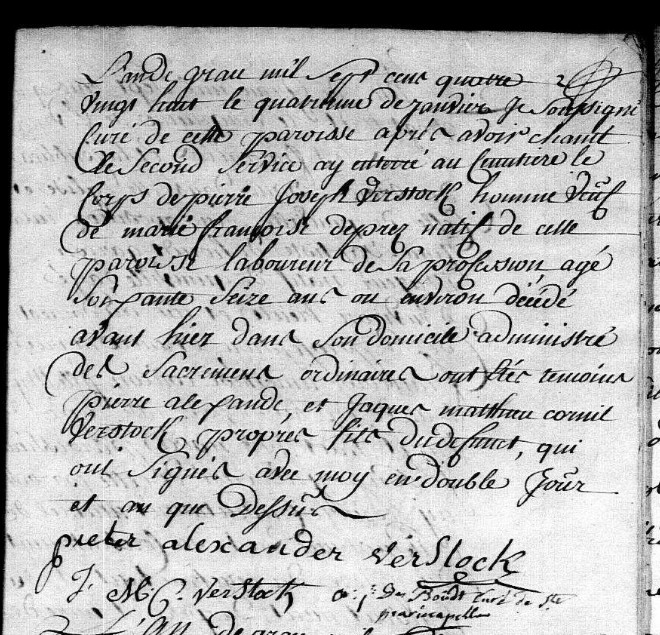 L'an de grace mil sept cens quattre
vingt huit le quatrieme de janvier je soussigné
curé de cette paroisse apris avoir chanté
le second service ay enterré au cimetiere le
corps de pierre Joseph Verstock homme veuf
de marie francoise deprez natif de cette
paroisse laboureur de sa profession agé
soixante seize ans ou environ décédé
avant hier dans son domicile administré
des sacremens ordinaires ont étés temoins
pierre alexandre, et Jaques matthieu cornil
Verstock propres fils du defunct, qui
ont signés avec moy en double jour
et an que dessus
pieter alexander verstock
J: M: C: verstock curé de Ste
mariecapelle
L'an de grace mil